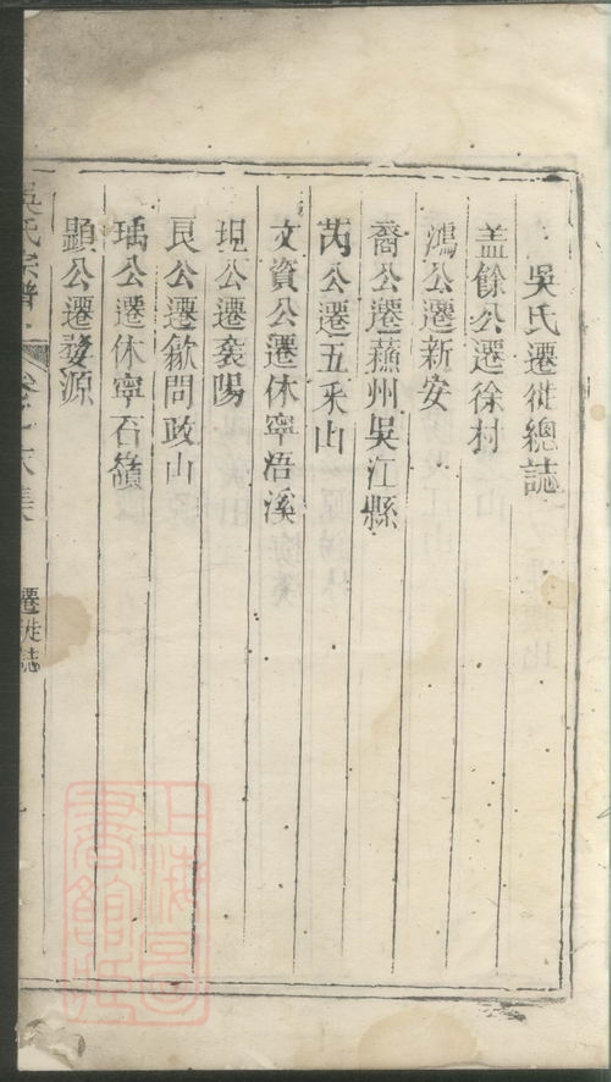 吳氏遷徙總誌
盖餘公遷徐村
鴻公遷新安
裔公遷蘓州吳江縣
芮公遷五釆山
文資公遷休寧浯溪
坦公遷襄陽
艮公遷歙問政山
瑀公遷休寧石嶺
顕公遷婺源
吳氏宗譜
卷之末集
遷徙誌
上海圖
書館藏